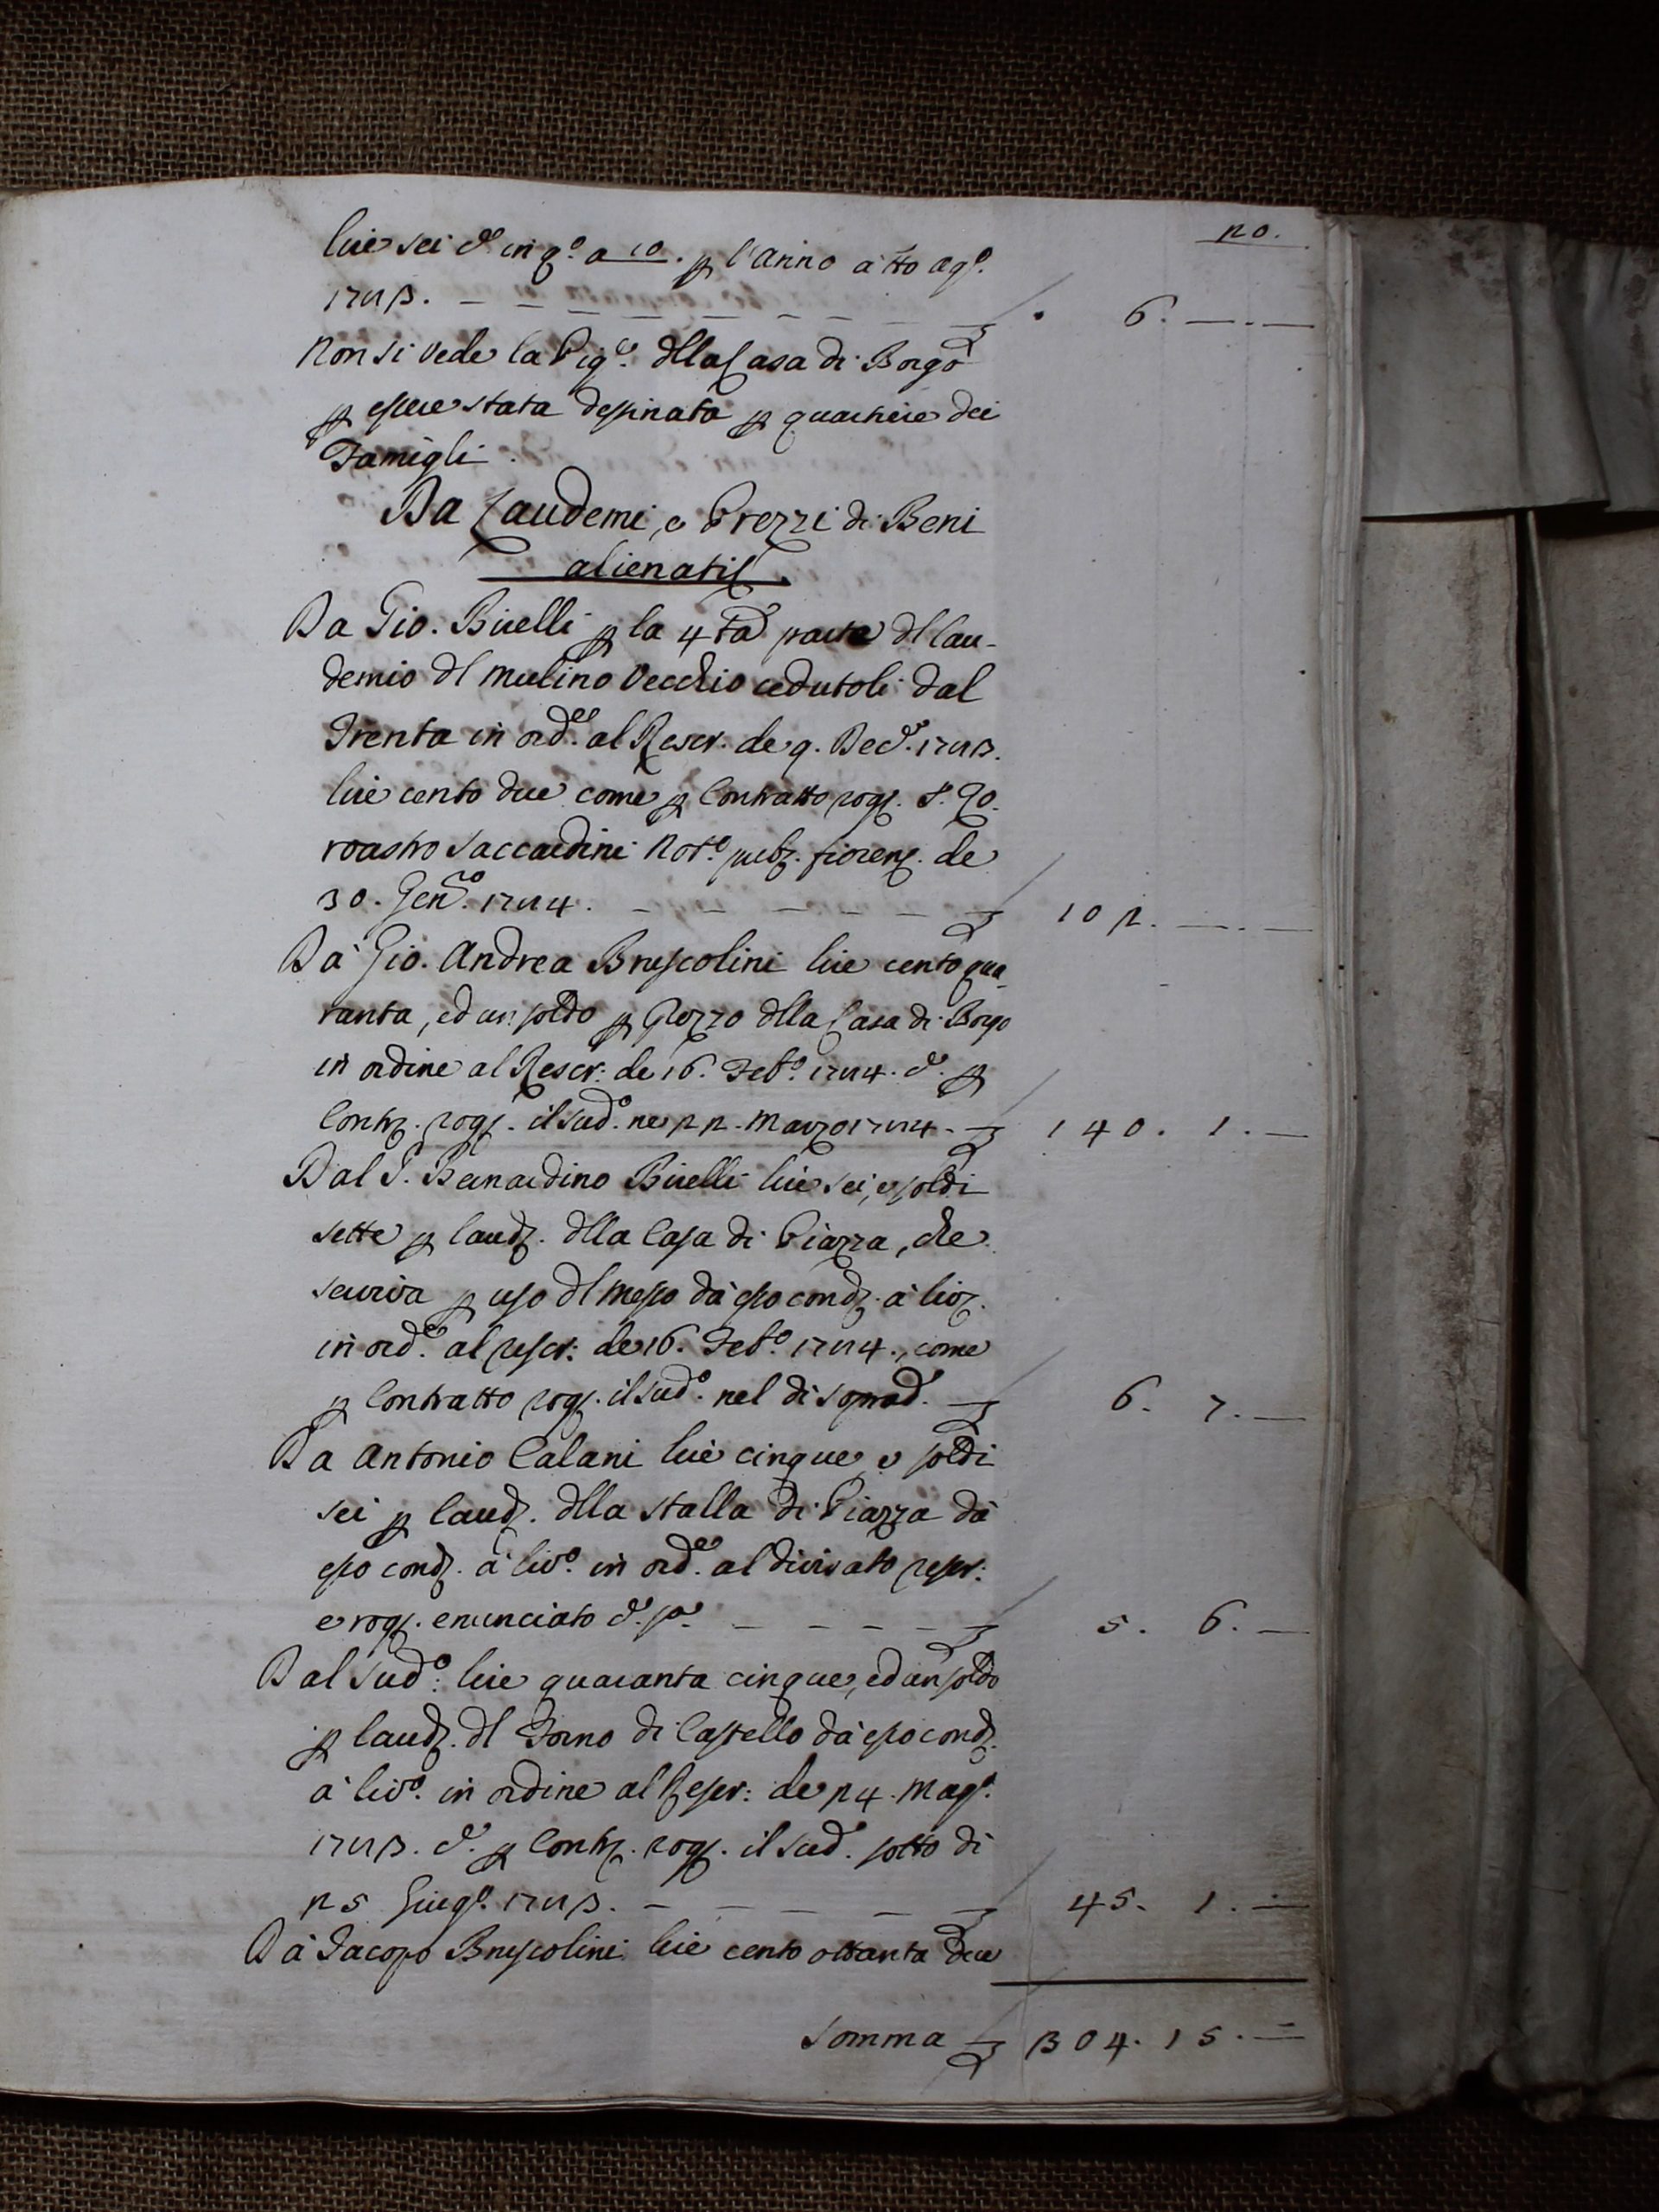 20.
lire sei d.º in q.º a 10. p l'anno à tto ag.º
1773. — — — — — — — — 6. —.—
Non si vede la Pig.e dlla Casa di Borgo
p essere stata destinata p quartiere dei
Famigli.
Da Laudemi, e Prezzi di Beni
alienati
Da Gio. Birelli p la 4ta parte dl lau-
demio dl Mulino Vecchio cedutoli dal
Trenta in ord.e al Rescr. de 9. Dec.e 1773.
lire cento due come p Contratto rog. S. Zo-
roastro Saccardini Not.º pub. fioren. de
30. Gen.º 1774. — — — — — — 102. —.—
Da Gio. Andrea Bruscolini lire cento qua-
ranta, ed un soldo p Prezzo dlla Casa di Borgo
in ordine al Rescr: de 16. Feb.º 1774. d.e p
Contr. rog. il sud.º ne 22. Marzo 1774. — 140. 1. —
Dal S. Bernardino Birelli lire sei, e soldi
sette p laud. dlla Casa di Piazza, che
serviva p uso dl Messo da esso cond. à liv.
in ord.e al rescr: de 16. Feb.º 1774., come
p Contratto rog. il sud.º nel di soprad.º — 6. 7. —
Da Antonio Calani lire cinque, e soldi
sei p laud. dlla stalla di Piazza da
esso cond. à liv.º in ord.e al divisato rescr:
e rog. enunciato d.e s.a — — — — — 5. 6. —
Dal sud.º: lire quaranta cinque, ed un soldo
p laud. dl Forno di Castello da esso cond.
à liv.º in ordine al Rescr: de 24. Mag.º
1773. d.e p Contr. rog. il sud.º sotto di
25 Giug.º 1773. — — — — — 45. 1. —
Da Jacopo Bruscolini lire cento ottanta due
Somma — 304. 15. —